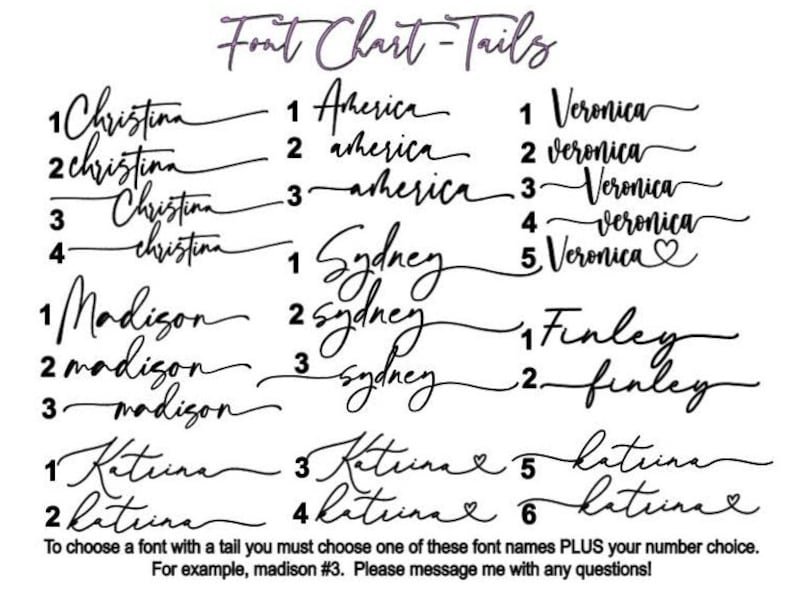 Font Chart - Tails
1 Christina
2 christina
3 Christina
4 christina
1 America
2 america
3 america
1 Veronica
2 veronica
3 Veronica
4 veronica
5 Veronica
1 Madison
2 madison
3 madison
1 Sydney
2 sydney
3 sydney
1 Finley
2 finley
1 Katrina
2 katrina
3 Katrina
4 katrina
5 katrina
6 katrina
To choose a font with a tail you must choose one of these font names PLUS your number choice.
For example, madison #3. Please message me with any questions!